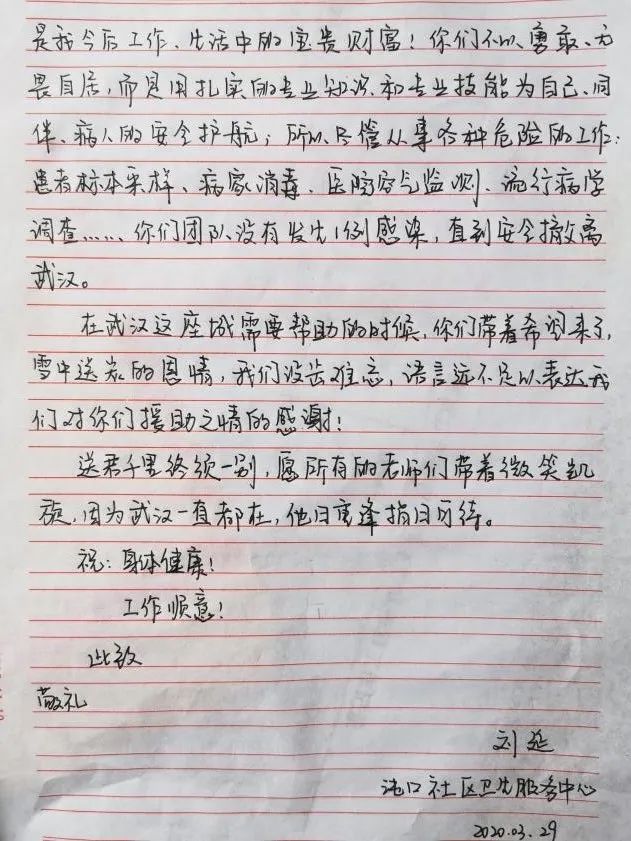 是我今后工作、生活中的宝贵财富！你们不以勇敢、无
畏自居，而是用扎实的专业知识和专业技能为自己、同
伴、病人的安全护航；所以尽管从事各种危险的工作：
患者标本采样、病家消毒、医院空气监测、流行病学
调查……你们团队没有发生1例感染，直到安全撤离
武汉。
在武汉这座城需要帮助的时候，你们带着希望来了，
雪中送炭的恩情，我们没齿难忘，语言远不足以表达我
们对你们援助之情的感谢！
送君千里终须一别，愿所有的老师们带着微笑凯
旋，因为武汉一直都在，他日重逢指日可待。
祝：身体健康！
工作顺意！
此致
敬礼
刘延
沌口社区卫生服务中心
2020.03.29